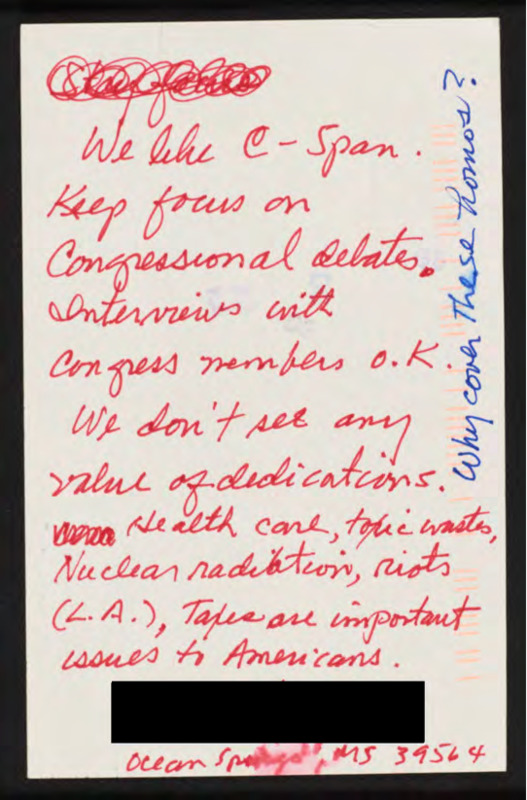 We like C-Span.
Keep focus on
Congressional debates.
Interviews with
Congress members O.K.
We don't see any
value of dedications.
Health care, toxic wastes,
Nuclear radiation, riots
(L.A.), Taxes are important
issues to Americans.
Ocean Springs, MS 39564
Why cover these homos?